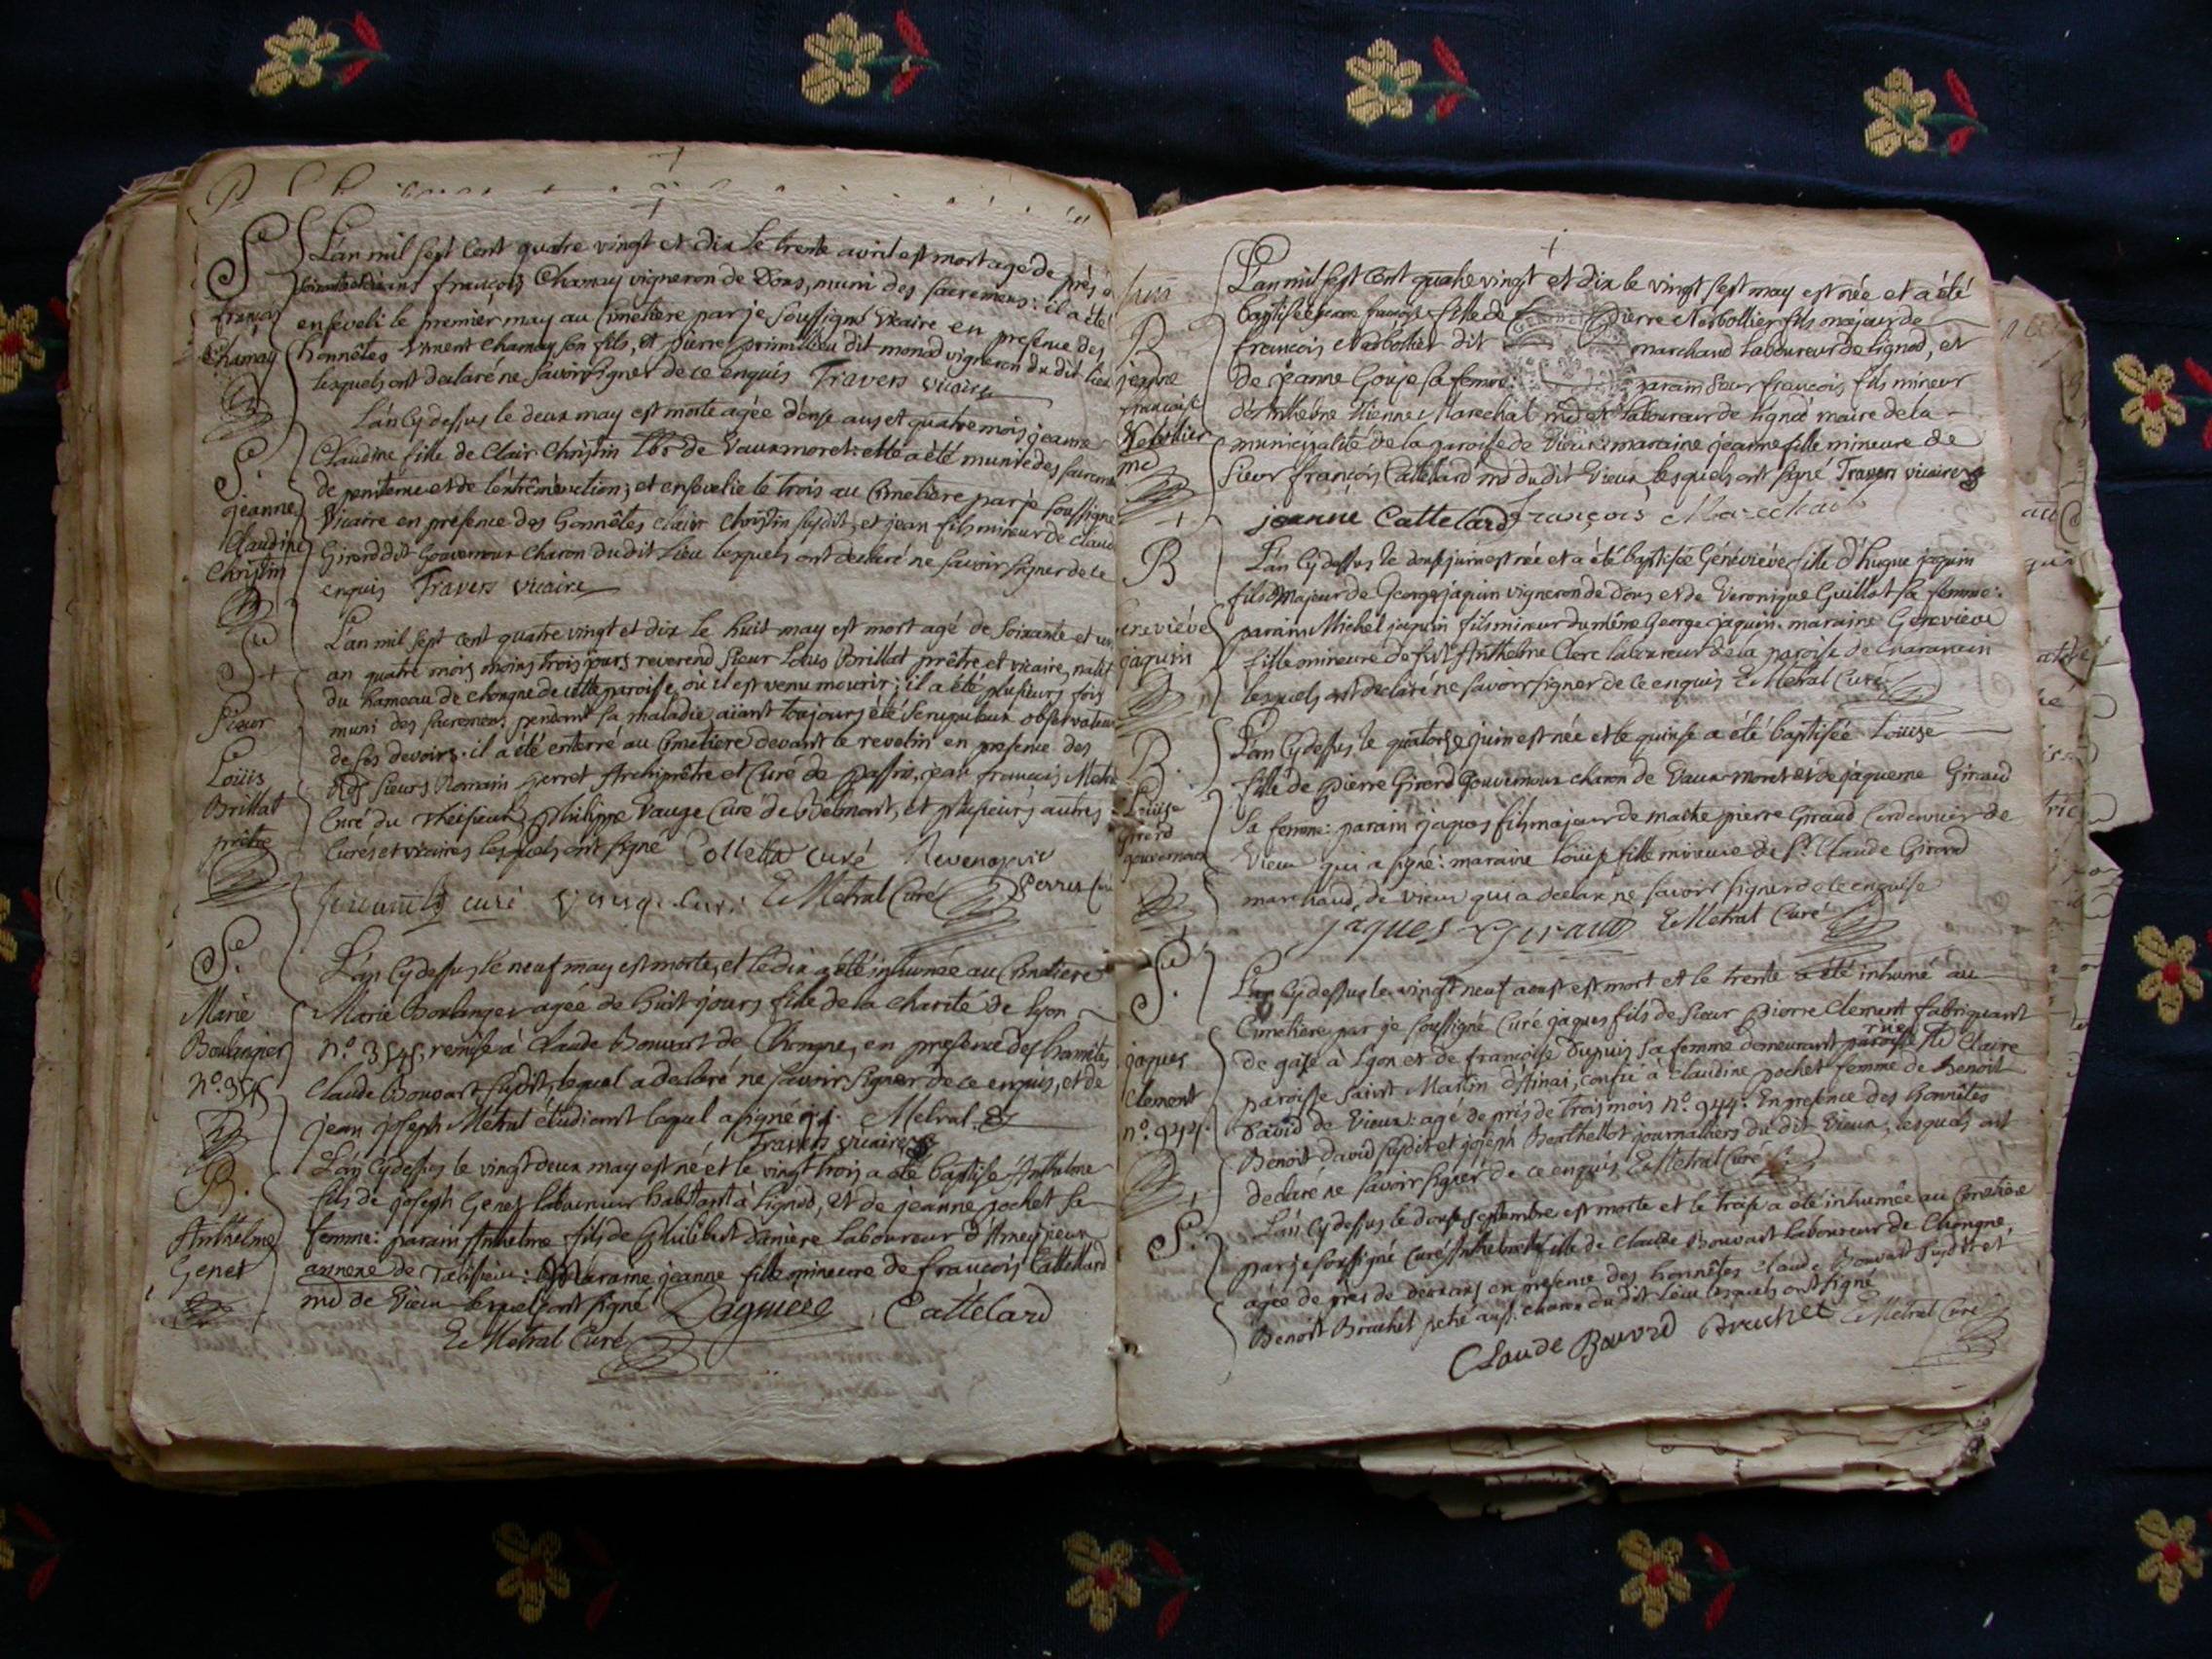 S.re
françois
Chamay
L'an mil sept cent quatre vingt et dix le trente avril est mort agé de près
françois Chamay vigneron de Dons, muni des sacremens: il a été
enseveli le premier may au Cimetiere par je soussigné vicaire en presence des
honnêtes vincent Chamay son fils, et pierre primillieu dit monod vigneron du dit lieu
lesquels ont declaré ne savoir signer de ce enquis Travers vicaire
S.
jeanne
Claudine
Christin
L'an cy dessus le deux may est morte agée d'onse ans et quatre mois jeanne
Claudine fille de Clair Christin lbr de Vauxmoret: elle a été munie des sacremens
de penitence et de l'extrêmonction; et ensevelie le trois au Cimetiere par je soussigné
Vicaire en présence des honnêtes clair Christin susdit, et jean fils mineur de claude
Girerd dit Gouvernour charon du dit lieu lesquels ont declaré ne savoir signer de ce
enquis Travers vicaire
S.re
Sieur
Loüis
Brillat
prêtre
L'an mil sept cent quatre vingt et dix le huit may est mort agé de soixante et un
an quatre mois moins trois jours reverend sieur Loüis Brillat prêtre et vicaire, natif
du hameau de chongne de cette paroisse, où il est venu mourir; il a été plusieurs fois
muni des sacremens pendant sa maladie, aiant toujours été scrupuleux observateur
de ses devoirs: il a été enterré au Cimetiere devant le revelin en presence des
Rds sieurs Romain perret Archiprêtre et Curé de passin, jean francois Metra
Curé du Theisieux, philippe Vauge Curé de Belmont, et plusieurs autres
Curés et vicaires lesquels ont signé Colletta curé
curé Vauge Curé E Metral Curé Perret Curé
S.
Marie
Boulangier
n.o 3545
L'an cy dessus le neuf may est morte, et le dix a été inhumée au Cimetiere
Marie Boulanger agée de huit jours fille de la charité de Lyon
n.o 3545, remise à claude Bouvart de Chongne, en presence des honnêtes
Claude Bouvart susdit, lequel a declaré ne savoir signer de ce enquis, et de
jean joseph Métral étudiant lequel a signé j: j: Metral
Travers vicaire
B.
Anthelme
Genet
L'an cy dessus le vingt deux may est né et le vingt trois a été baptisé Anthelme
fils de joseph Genet laboureur habitant à Lignod, et de jeanne pochet sa
femme: parain Anthelme fils de philibert Daniere laboureur d'Ameyzieux
annexe de Talissieu: Maraine jeanne fille mineure de francois Cattellard
md de Vieux lesquels ont signé Dagniere Cattelard
E Metral Curé
B
jeanne
francoise
Nerbollier
md
L'an mil sept cent quatre vingt et dix le vingt sept may est née et a été
baptisée jeanne françoise fille de Pierre Nerbollier fils majeur de
francois Nerbollier dit marchand laboureur de Lignod, et
de jeanne Gouje sa femme: parain sieur francois fils mineur
d'Anthelme Etienne Marechal md et laboureur de Lignod maire de la
municipalité de la paroisse de Vieux: maraine jeanne fille mineure de
sieur françois Cattelard md du dit Vieux, lesquels ont signé Travers vicaire
jeanne Cattelard François Marechal
B
Geneviéve
jaquin
L'an cy dessus le douse juin est née et a été baptisée Géneviéve fille d'hugue jaquin
fils majeur de George jaquin vigneron de Dons et de Veronique Guillot sa femme:
parain Michel jaquin fils mineur du même George jaquin: maraine Genevieve
fille mineure de feu Anthelme Clerc laboureur de la paroisse de Charancin
lesquels ont declaré ne savoir signer de ce enquis E Metral Curé
B.
Loüise
Girerd
gouvernour
L'an cy dessus le quatorse juin est née et le quinse a été baptisée Loüise
fille de pierre Girerd Gouvernour charon de Vaux-moret et de jaqueme Giraud
sa femme: parain jaques fils majeur de maitre pierre Giraud Cordonnier de
Vieux qui a signé: maraine loüise fille mineure de S.r Claude Girerd
marchand, de vieux qui a declaré ne savoir signer de ce enquise
jaques Giraud E Metral Curé
S.re
jaques
Clement
n.o 944.
L'an cy dessus le vingt neuf aoust est mort et le trente a été inhumé au
Cimetiere par je soussigné Curé jaques fils de sieur Pierre Clement fabriquant
de gase à Lyon et de françoise Dupuis sa femme demeurant paroisse rue Ste Claire
paroisse saint Martin d'Ainai, confié à claudine pochet femme de Benoit
David de Vieux: agé de près de trois mois n.o 944. En presence des honnêtes
Benoit David susdit et joseph Berthellot journalliers du dit Vieux, lesquels ont
declaré ne savoir signer de ce enquis E Metral Curé
S.
L'an cy dessus le douse septembre est morte et le treise a été inhumée au Cimetiere
par je soussigné Curé Anthelmette fille de claude Bouvart laboureur de Chongne,
agée de près de deux ans en presence des honnêtes claude Bouvart susdit et
Benoit Brachet charon du dit lieu lesquels ont signé
Claude Bouvard Brachet E Metral Curé